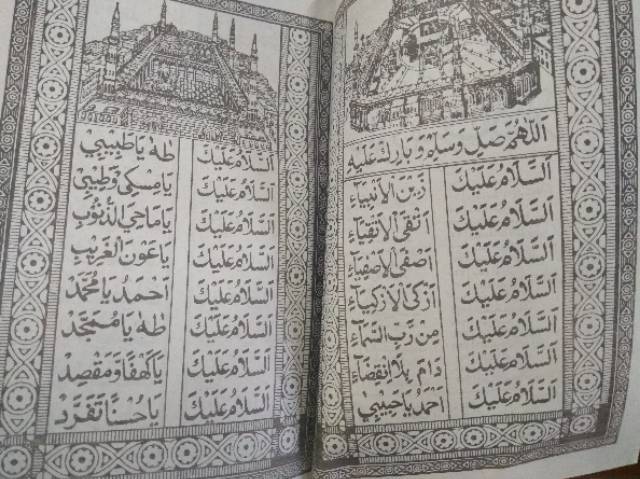 اَللّٰهُمَّ صَلِّ وَسَلِّمْ وَبَارِكْ عَلَيْهِ
اَلسَّلَامُ عَلَيْكَ زَيْنَ الْاَنْبِيَاءِ
اَلسَّلَامُ عَلَيْكَ اَتْقَى الْاَتْقِيَاءِ
اَلسَّلَامُ عَلَيْكَ اَصْفَى الْاَصْفِيَاءِ
اَلسَّلَامُ عَلَيْكَ اَزْكَى الْاَزْكِيَاءِ
اَلسَّلَامُ عَلَيْكَ مِنْ رَبِّ السَّمَاءِ
اَلسَّلَامُ عَلَيْكَ دَائِمْ بِلَا انْقِضَاءِ
اَلسَّلَامُ عَلَيْكَ اَحْمَدُ يَا حَبِيْبِيْ
اَلسَّلَامُ عَلَيْكَ طٰهٰ يَا طَبِيْبِيْ
اَلسَّلَامُ عَلَيْكَ يَا مِسْكِيْ وَطِيْبِيْ
اَلسَّلَامُ عَلَيْكَ يَا مَاحِيَ الذُّنُوْبِ
اَلسَّلَامُ عَلَيْكَ يَا عَوْنَ الْغَرِيْبِ
اَلسَّلَامُ عَلَيْكَ اَحْمَدُ يَا مُحَمَّدْ
اَلسَّلَامُ عَلَيْكَ طٰهٰ يَا مُمَجَّدْ
اَلسَّلَامُ عَلَيْكَ يَا كَهْفًا وَمَقْصِدْ
اَلسَّلَامُ عَلَيْكَ يَا حُسْنًا تَفَرَّدْ